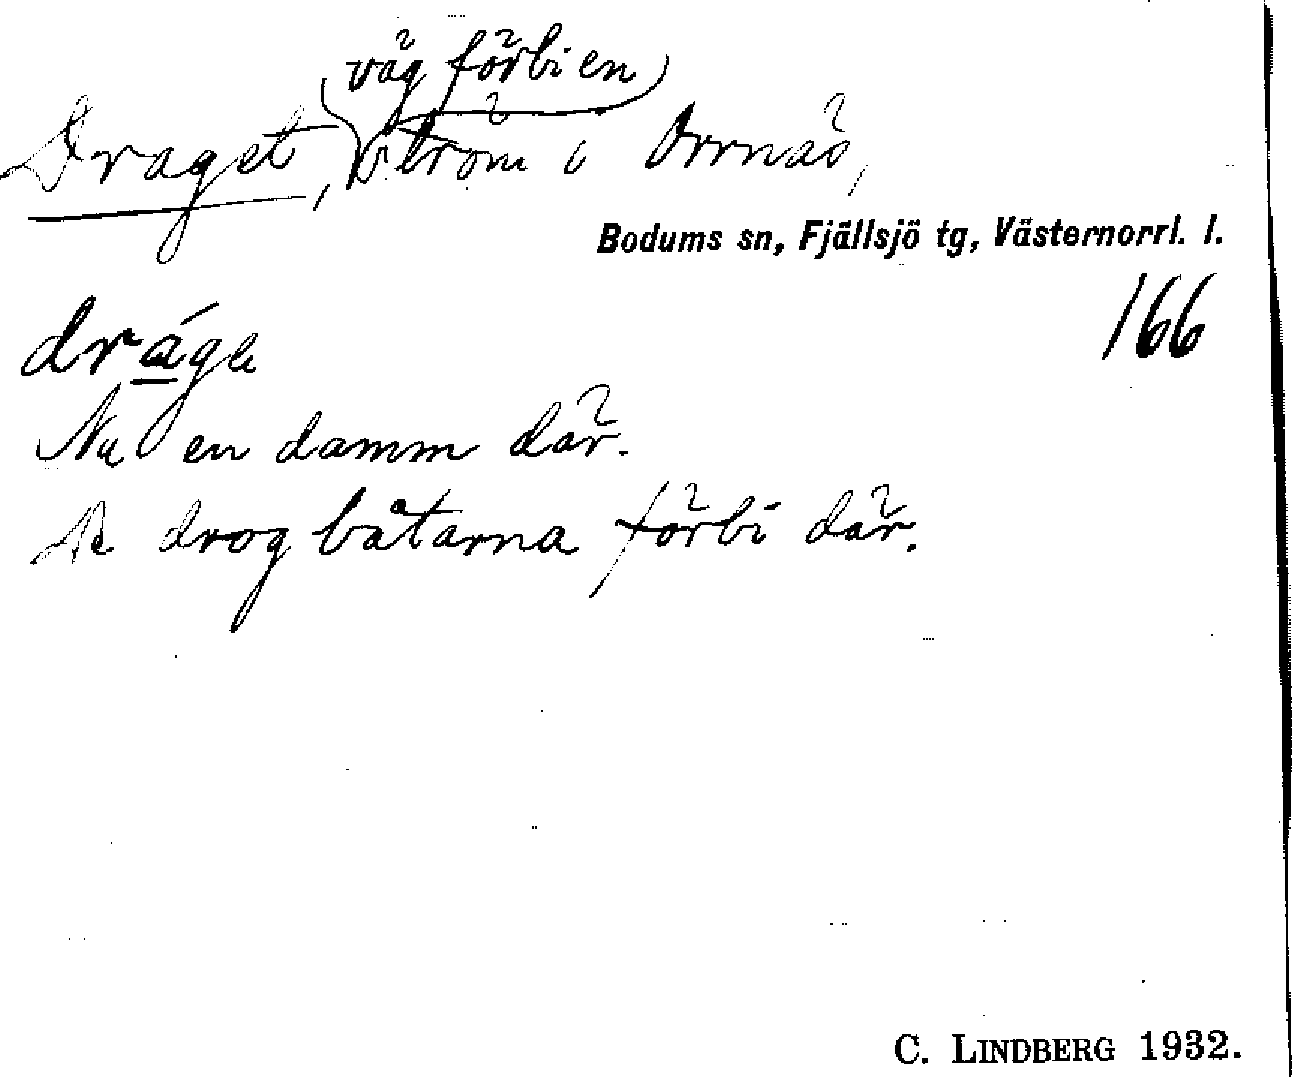 väg förbi en
Draget, ström i Orrnäs,
Bodums sn, Fjällsjö tg, Västernorrl. l.
166
drágɘ
Nu en damm där.
De drog båtarna förbi där.
C. LINDBERG 1932.